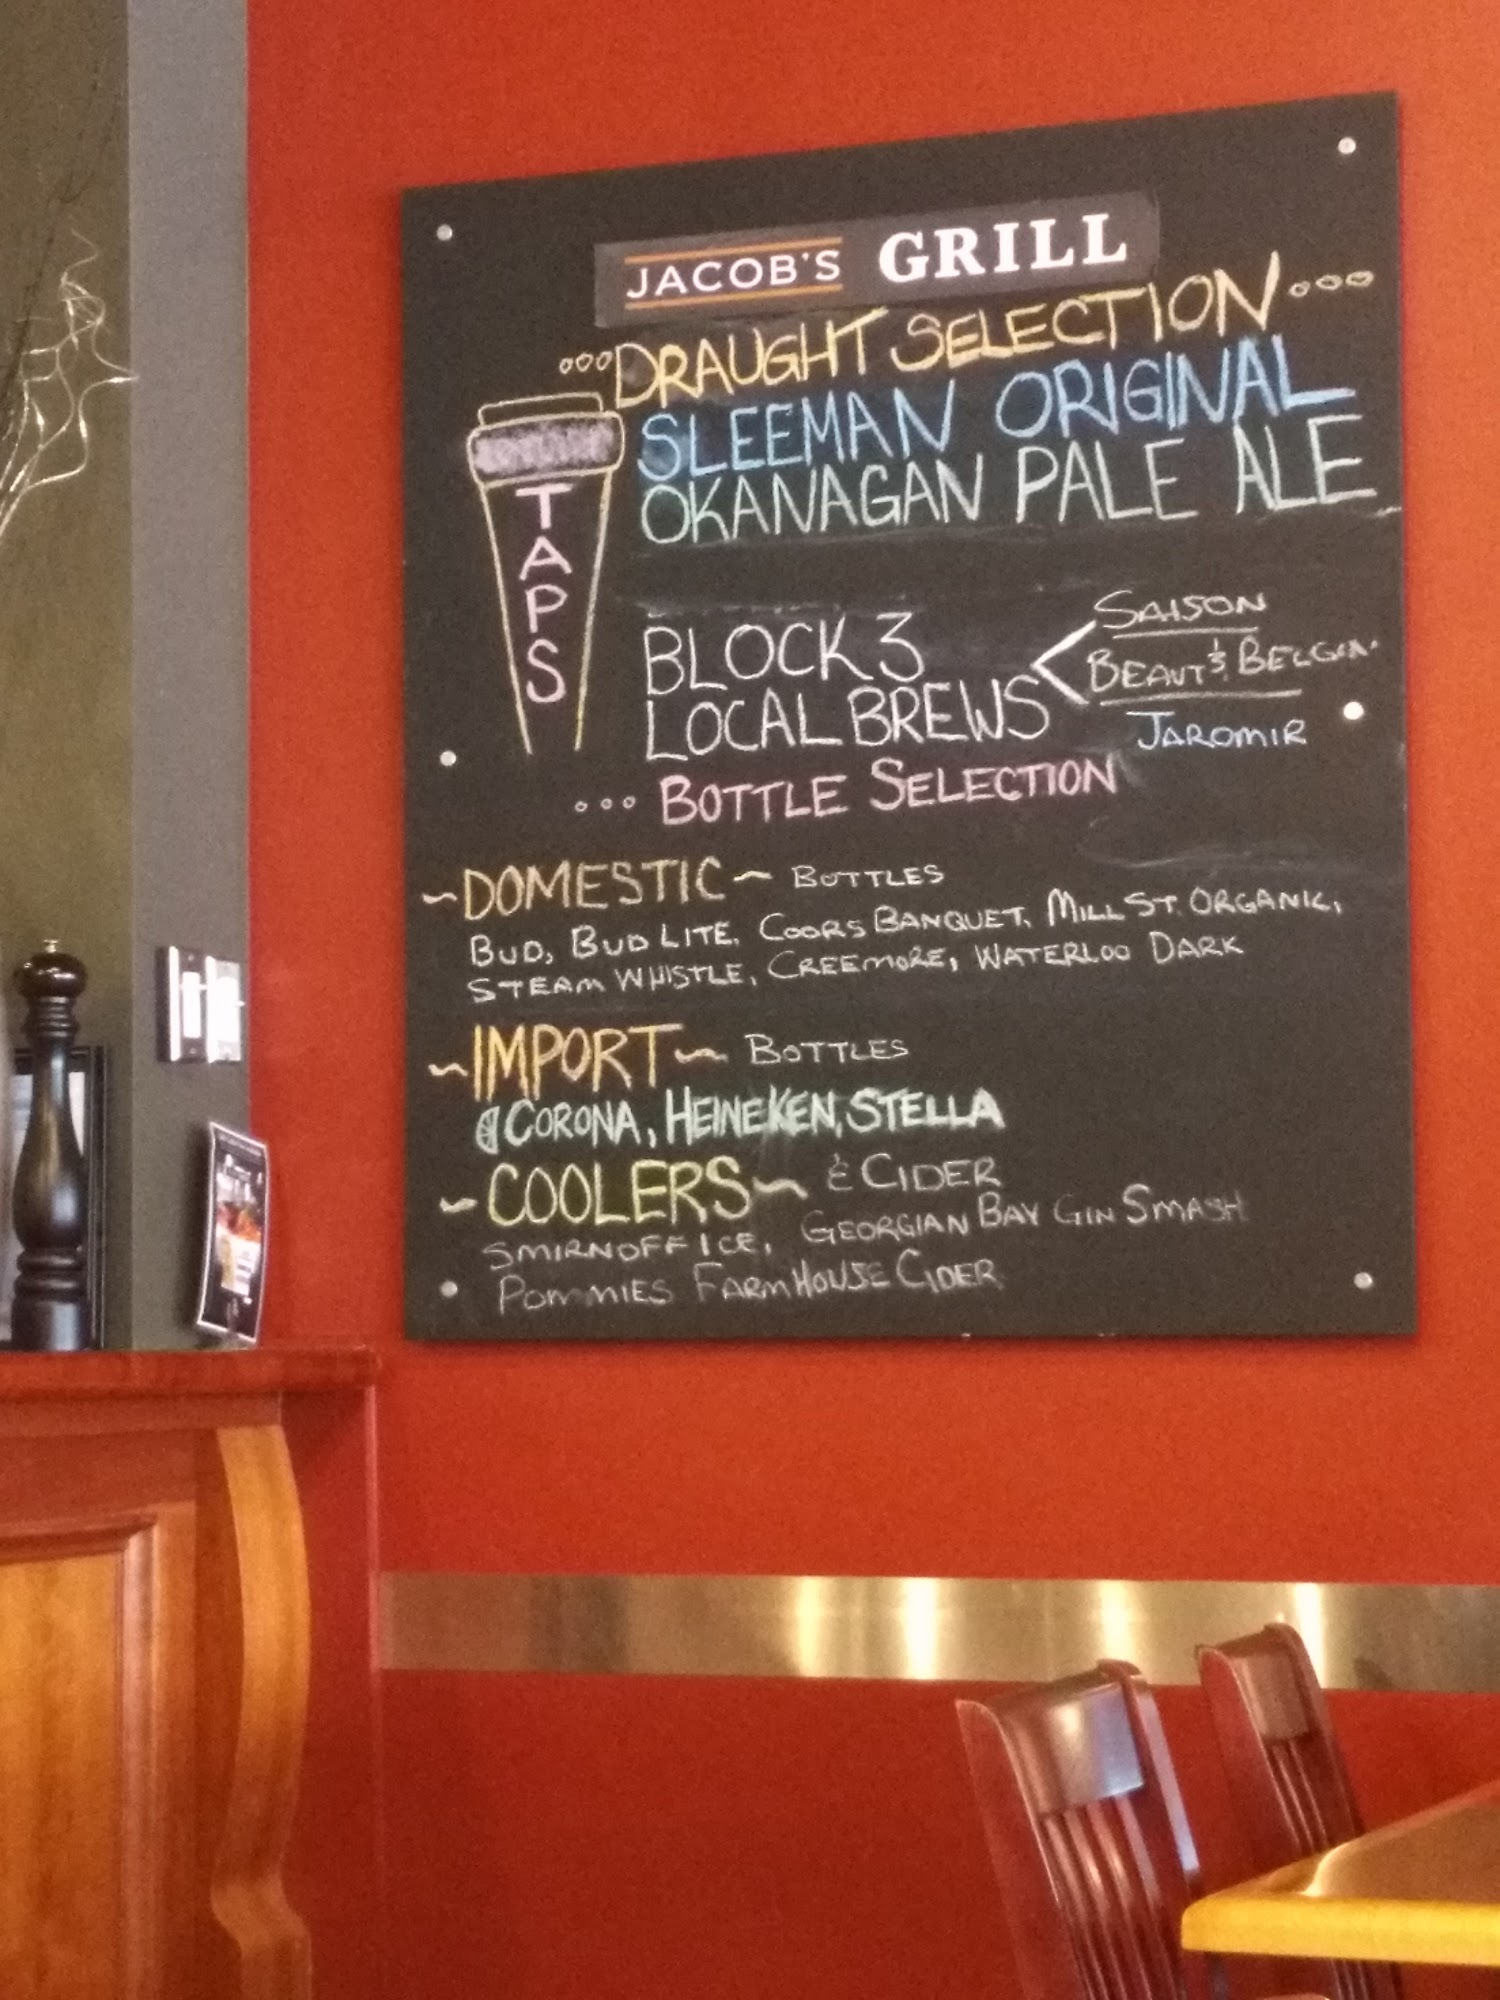 JACOB'S GRILL
DRAUGHT SELECTION
SLEEMAN ORIGINAL
OKANAGAN PALE ALE
TAPS
BLOCK 3
LOCAL BREWS
SAISON
BEAUT & BELGIAN
JAROMIR
BOTTLE SELECTION
~DOMESTIC~ BOTTLES
BUD, BUD LITE, COORS BANQUET, MILL ST. ORGANIC,
STEAM WHISTLE, CREEMORE, WATERLOO DARK
~IMPORT~ BOTTLES
CORONA, HEINEKEN, STELLA
~COOLERS~ & CIDER
SMIRNOFF ICE, GEORGIAN BAY GIN SMASH
POMMIES FARMHOUSE CIDER